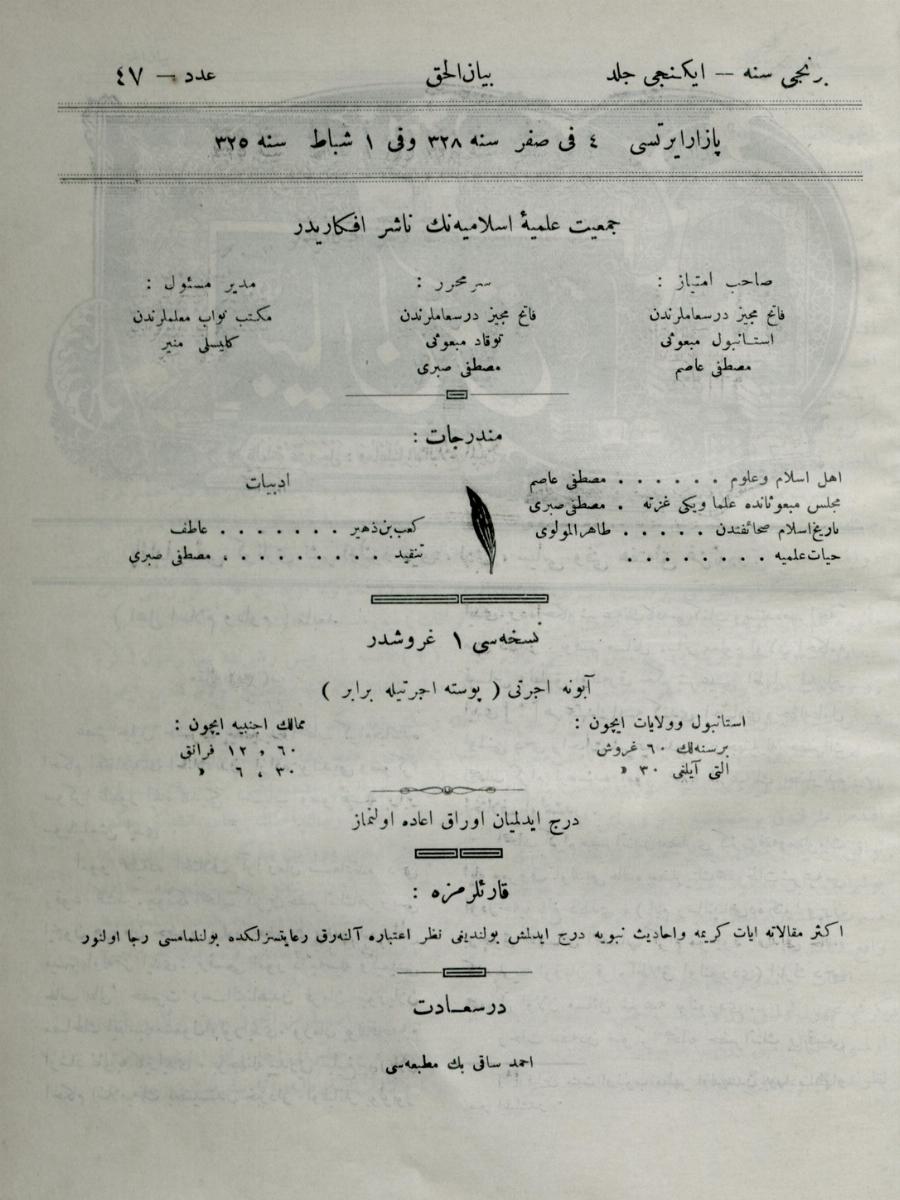 برنجی سنه — ایکنجی جلد
بیان‌الحق
عدد — ٤٧
پازارایرتسی ٤ فی صفر سنه ٣٢٨ وفی ١ شباط سنه ٣٢٥
جمعیت علمیهٔ اسلامیه‌نك ناشر افکاریدر
صاحب امتیاز :
فاتح مجیز درسعاملرندن
استانبول مبعوثی
مصطفی عاصم
سر محرر :
فاتح مجیز درسعاملرندن
توقاد مبعوثی
مصطفی صبری
مدیر مسئول :
مکتب نواب معلملرندن
کلیسلی منیر
مندرجات :
اهل اسلام وعلوم . . . . . . مصطفی عاصم
مجلس مبعوثانده علما ویکی غزته . مصطفی صبری
تاریخ اسلام صحائفندن . . . . . طاهر المولوی
حیات علمیه . . . . . . . .
ادبیات
کعب بن ذهیر . . . . . . . عاطف
تنقید . . . . . . . . . مصطفی صبری
نسخه‌سی ١ غروشدر
آبونه اجرتی ( پوسته اجرتیله برابر )
استانبول وولایات ایچون :
برسنه‌لك ٦٠ غروش
التی آیلغی ٣٠ »
ممالك اجنبیه ایچون :
٦٠ ، ١٢ فرانق
٣٠ ، ٦ »
درج ایدلمیان اوراق اعاده اولنماز
قارئلرمزه :
اکثر مقالاته ایات کریمه واحادیث نبویه درج ایدلمش بولندیغی نظر اعتباره آلنه‌رق رعایتسزلکده بولنلمامسی رجا اولنور
درسعادت
احمد ساقی بك مطبعه‌سی